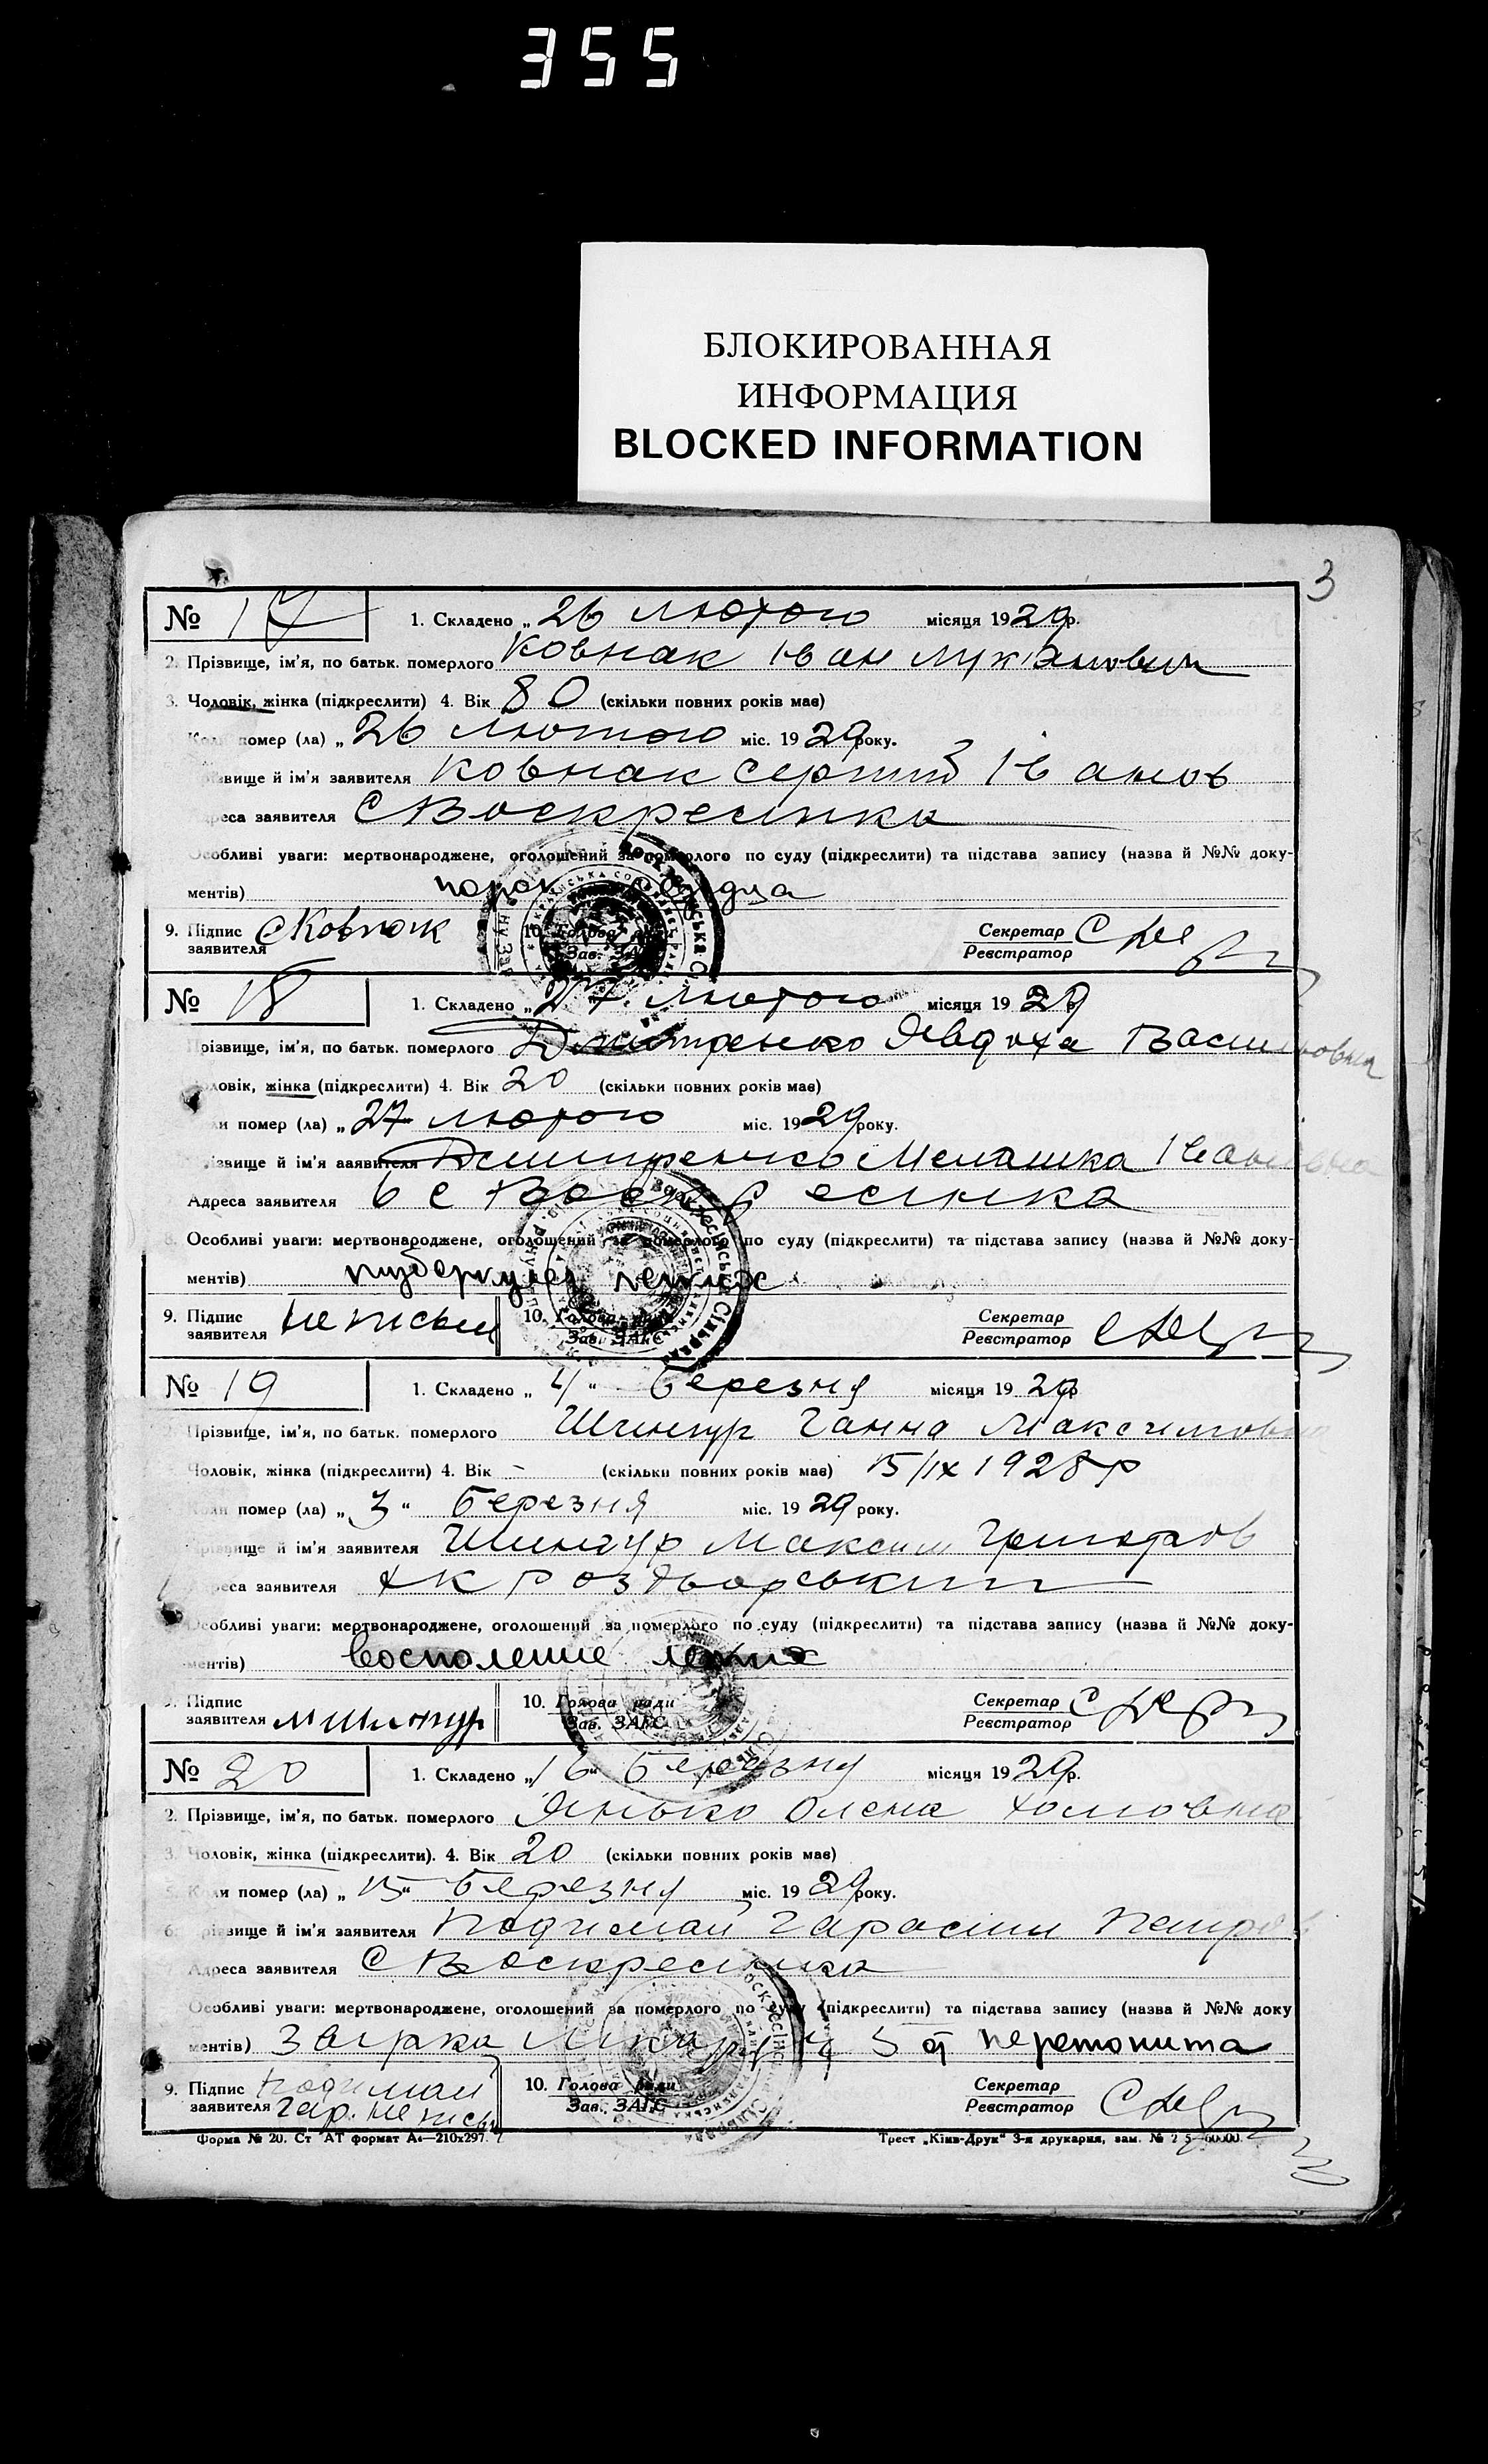 355
БЛОКИРОВАННАЯ
ИНФОРМАЦИЯ
BLOCKED INFORMATION
3
№ 17 1. Складено „ 26 лютого місяця 1929р.
2. Прізвище, ім'я, по батьк. померлого Ковнак Іван Лукʼянович
3. Чоловік, жінка (підкреслити) 4. Вік 80 (скільки повних років має)
Коли помер (ла) „ 26 лютого міс. 1929року.
різвище й ім'я заявителя Ковнак Сергий Іванов
дреса заявителя С Воскресінка
Особливі уваги: мертвонароджене, оголошений за померлого по суду (підкреслити) та підстава запису (назва й №№ доку-
ментів) порок сердца
9. Підпис заявителя С Ковнак 10. Голова ради Зав. ЗАГС Секретар Реєстратор
№ 18 1. Складено „ 27 лютого місяця 1929
Прізвище, ім'я, по батьк. померлого Дмитренко Явдоха Василовна
Чоловік, жінка (підкреслити) 4. Вік 20 (скільки повних років має)
ли помер (ла) „ 27 лютого міс. 1929року.
різвище й ім'я заявителя Дмитренко Мелашка Івановна
Адреса заявителя в с Воскресінка
8. Особливі уваги: мертвонароджене, оголошений за померлого по суду (підкреслити) та підстава запису (назва й №№ доку-
ментів) туберкулез легких
9. Підпис заявителя неписьм 10. Голова ради Зав. ЗАГС Секретар Реєстратор
№ 19 1. Складено „ 4 “ Березня місяця 1929р
Прізвище, ім'я, по батьк. померлого Шингур Ганна Максимовна
Чоловік, жінка (підкреслити) 4. Вік - (скільки повних років має) 15/ІХ 1928р
Коли помер (ла) „ 3 “ Березня міс. 1929 року.
Прізвище й ім'я заявителя Шингур Максим Григоров
Адреса заявителя
Особливі уваги: мертвонароджене, оголошений за померлого по суду (підкреслити) та підстава запису (назва й №№ доку-
ментів) восполение легких
9. Підпис заявителя М Шингур 10. Голова ради Зав. ЗАГС Секретар Реєстратор
№ 20 1. Складено „ 16 “ Березня місяця 1929р.
2. Прізвище, ім'я, по батьк. померлого Янько Олена Хомовна
3. Чоловік, жінка (підкреслити). 4. Вік 20 (скільки повних років має)
5. Коли помер (ла) „ 15 “ Березня міс. 1929року.
6. Прізвище й ім'я заявителя Подимай Гарасим Петров
Адреса заявителя С Воскресінка
Особливі уваги: мертвонароджене, оголошений за померлого по суду (підкреслити) та підстава запису (назва й №№ доку
ментів) 5 от перетонита
9. Підпис заявителя Подимай Гар. неписьм 10. Голова ради Зав. ЗАГС Секретар Реєстратор
Форма № 20. Ст АТ формат А4—210x297.
Трест „Київ-Друк“ 3-я друкарня, зам. №